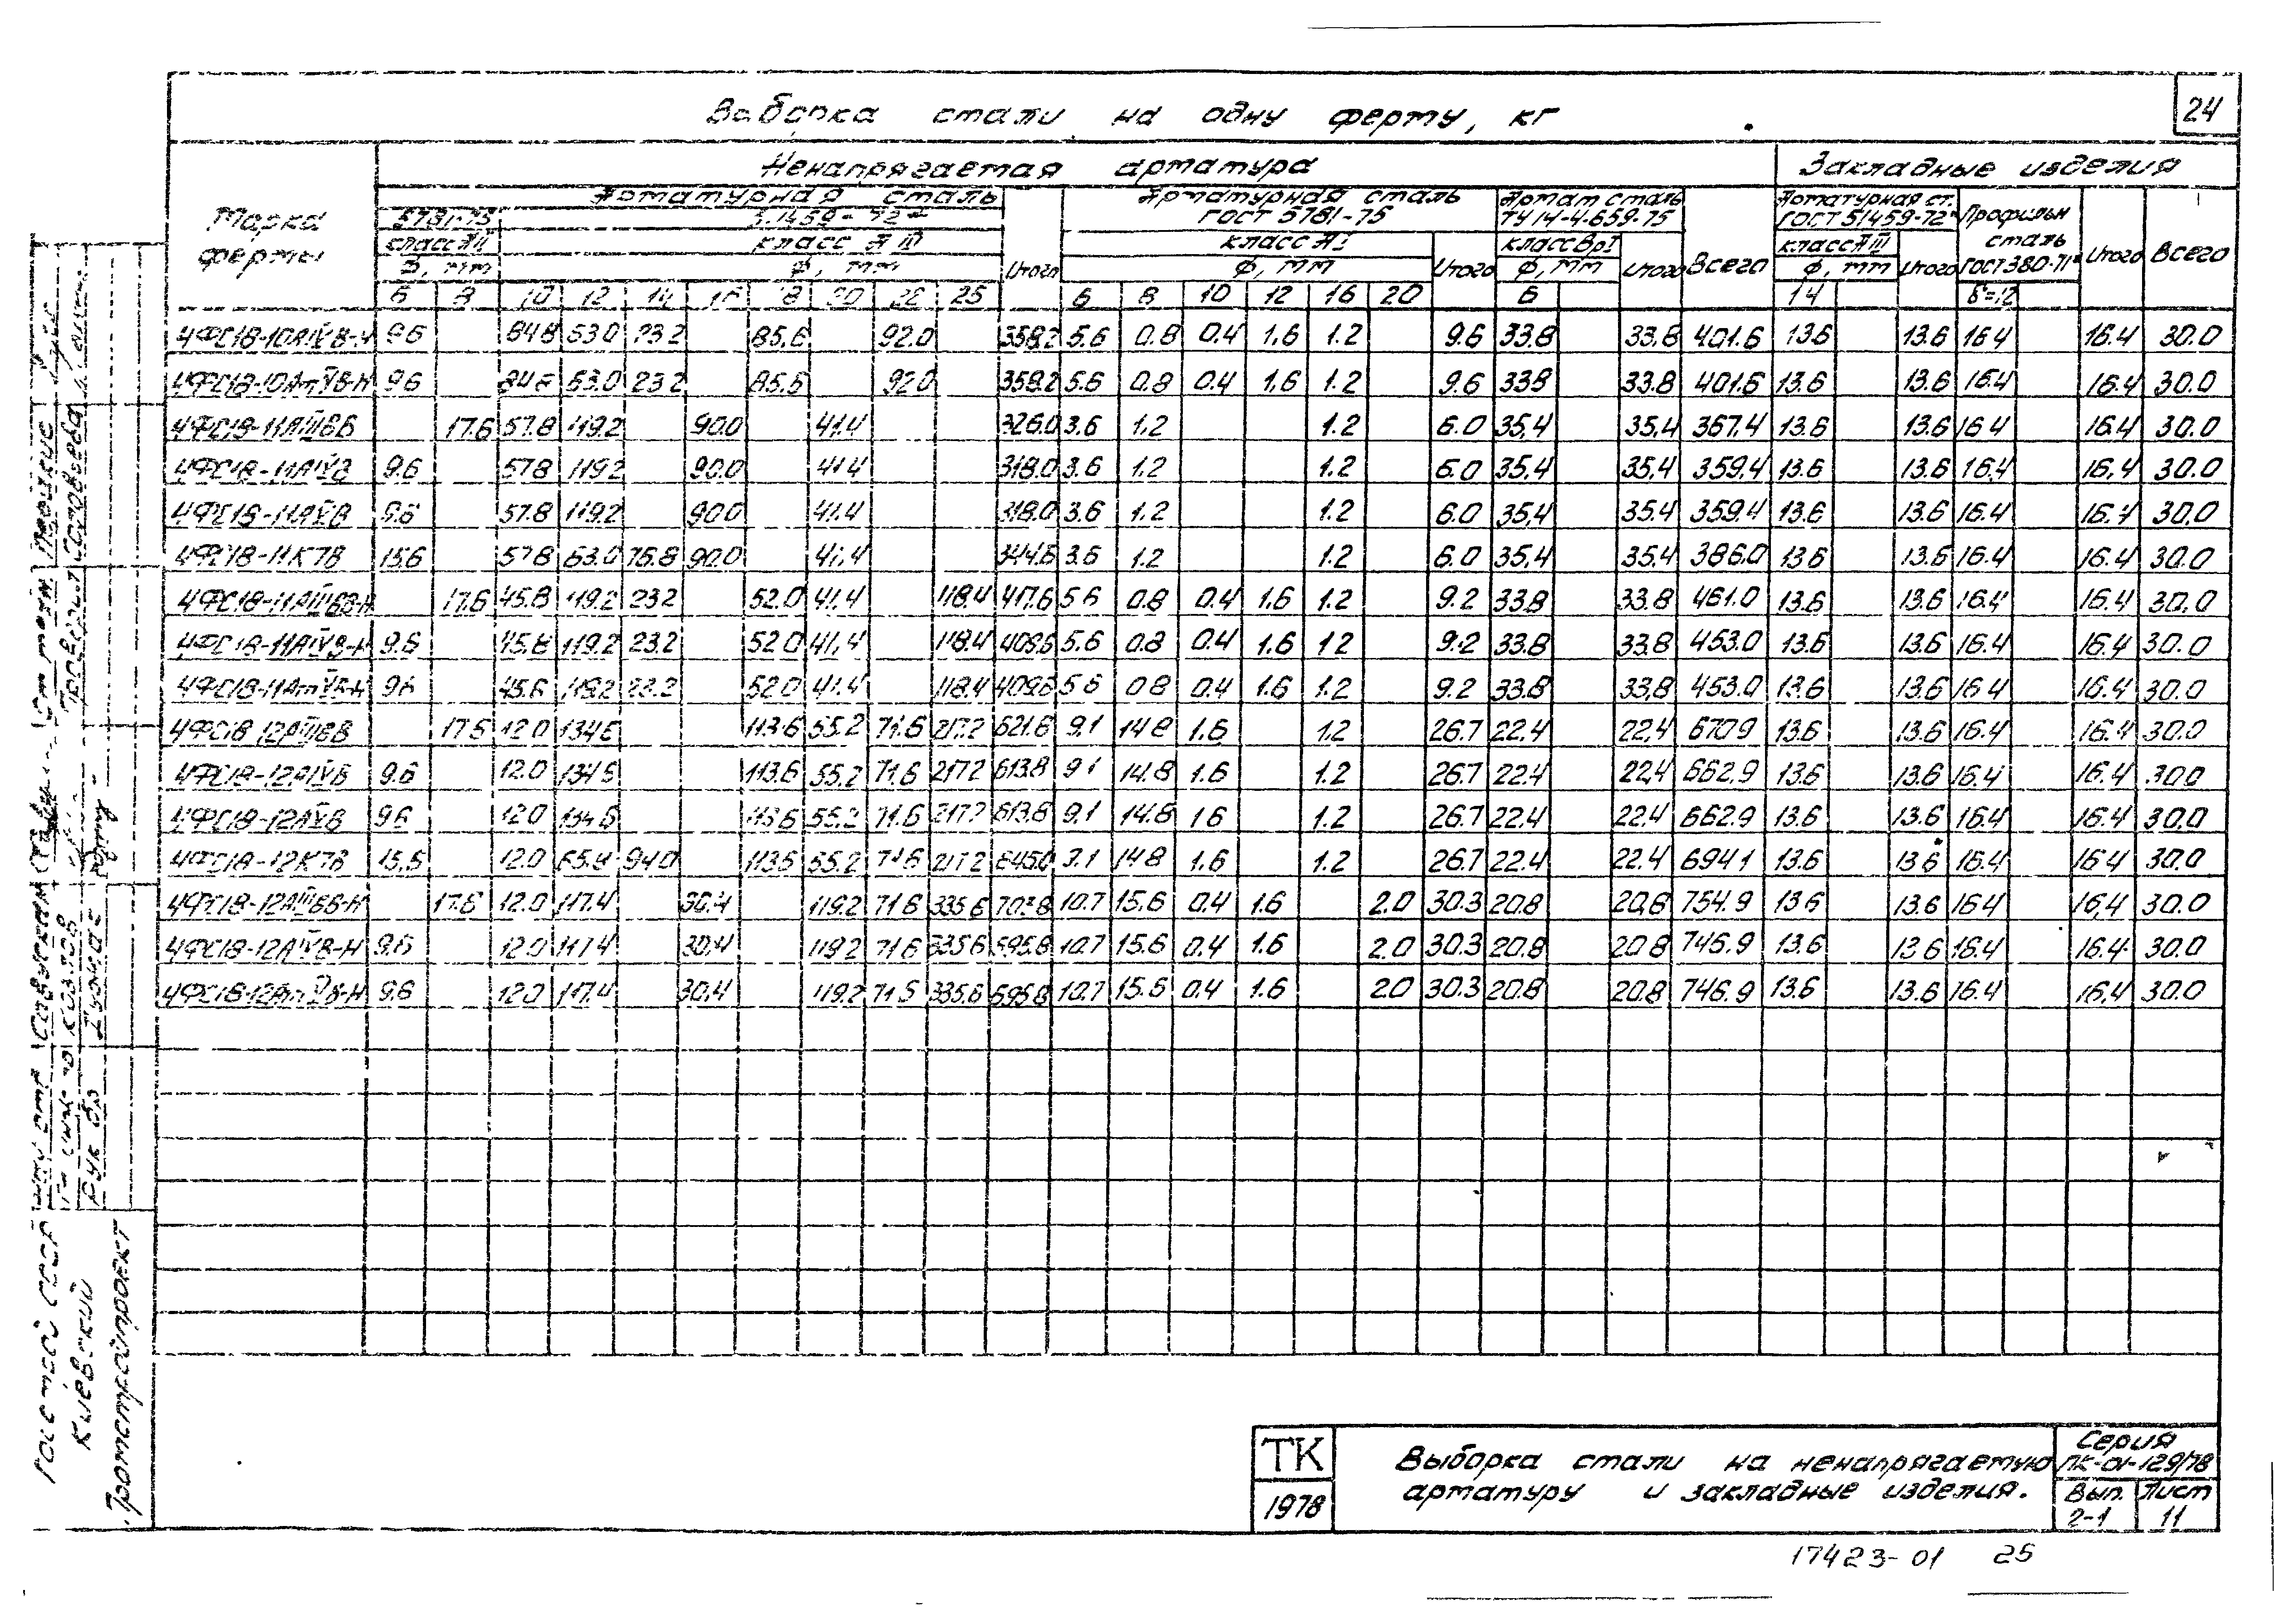 24
Выборка стали на одну ферму, кг
Марка фермы
Ненапрягаемая арматура
Закладные изделия
Арматурная сталь
Арматурная сталь ГОСТ 5781-75
Армат сталь ТУ 14-4-659-75
Арматурная ст. ГОСТ 51459-72*
Профильн сталь ГОСТ 380-71*
5781-75 51459-72*
класс АIII класс АI класс ВрI класс АIII
ф, мм Итого ф, мм Итого ф, мм Итого Всего ф, мм Итого Итого Всего
6 8 10 12 14 16 18 20 22 25 6 8 10 12 16 20 6 14 δ=12
4ФС18-10АIVВ-Н 9.6 84.8 63.0 23.2 85.6 92.0 358.2 5.6 0.8 0.4 1.6 1.2 9.6 33.8 33.8 401.6 13.6 13.6 16.4 16.4 30.0
4ФС18-10АтVВ-Н 9.6 84.8 63.0 23.2 85.6 92.0 358.2 5.6 0.8 0.4 1.6 1.2 9.6 33.8 33.8 401.6 13.6 13.6 16.4 16.4 30.0
4ФС18-11АIIIвВ 17.6 57.8 119.2 90.0 41.4 326.0 3.6 1.2 1.2 6.0 35.4 35.4 367.4 13.6 13.6 16.4 16.4 30.0
4ФС18-11АIVВ 9.6 57.8 119.2 90.0 41.4 318.0 3.6 1.2 1.2 6.0 35.4 35.4 359.4 13.6 13.6 16.4 16.4 30.0
4ФС18-11АVВ 9.6 57.8 119.2 90.0 41.4 318.0 3.6 1.2 1.2 6.0 35.4 35.4 359.4 13.6 13.6 16.4 16.4 30.0
4ФС18-11К7В 15.6 57.8 63.0 76.8 90.0 41.4 344.6 3.6 1.2 1.2 6.0 35.4 35.4 386.0 13.6 13.6 16.4 16.4 30.0
4ФС18-11АIIIвВ-Н 17.6 45.8 119.2 23.2 52.0 41.4 118.4 417.6 5.6 0.8 0.4 1.6 1.2 9.2 33.8 33.8 461.0 13.6 13.6 16.4 16.4 30.0
4ФС18-11АIVВ-Н 9.6 45.8 119.2 23.2 52.0 41.4 118.4 409.6 5.6 0.8 0.4 1.6 1.2 9.2 33.8 33.8 453.0 13.6 13.6 16.4 16.4 30.0
4ФС18-11АтVВ-Н 9.6 45.6 119.2 23.2 52.0 41.4 118.4 409.6 5.6 0.8 0.4 1.6 1.2 9.2 33.8 33.8 453.0 13.6 13.6 16.4 16.4 30.0
4ФС18-12АIIIвВ 17.6 12.0 134.6 113.6 55.2 71.6 217.2 621.8 9.1 14.8 1.6 1.2 26.7 22.4 22.4 670.9 13.6 13.6 16.4 16.4 30.0
4ФС18-12АIVВ 9.6 12.0 134.6 113.6 55.2 71.6 217.2 613.8 9.1 14.8 1.6 1.2 26.7 22.4 22.4 662.9 13.6 13.6 16.4 16.4 30.0
4ФС18-12АVВ 9.6 12.0 134.6 113.6 55.2 71.6 217.2 613.8 9.1 14.8 1.6 1.2 26.7 22.4 22.4 662.9 13.6 13.6 16.4 16.4 30.0
4ФС18-12К7В 15.6 12.0 65.4 94.0 113.6 55.2 71.6 217.2 645.0 9.1 14.8 1.6 1.2 26.7 22.4 22.4 694.1 13.6 13.6 16.4 16.4 30.0
4ФС18-12АIIIвВ-Н 17.6 12.0 117.4 30.4 119.2 71.6 335.6 703.8 10.7 15.6 0.4 1.6 2.0 30.3 20.8 20.8 754.9 13.6 13.6 16.4 16.4 30.0
4ФС18-12АIVВ-Н 9.6 12.0 117.4 30.4 119.2 71.6 335.6 695.8 10.7 15.6 0.4 1.6 2.0 30.3 20.8 20.8 746.9 13.6 13.6 16.4 16.4 30.0
4ФС18-12АтVВ-Н 9.6 12.0 117.4 30.4 119.2 71.6 335.6 695.8 10.7 15.6 0.4 1.6 2.0 30.3 20.8 20.8 746.9 13.6 13.6 16.4 16.4 30.0
Госстрой СССР
Киевский
Промстройпроект
ТК
1978
Выборка стали на ненапрягаемую
арматуру и закладные изделия.
Серия
ПК-01-129/78
Вып. Лист
2-1 11
17423-01 25